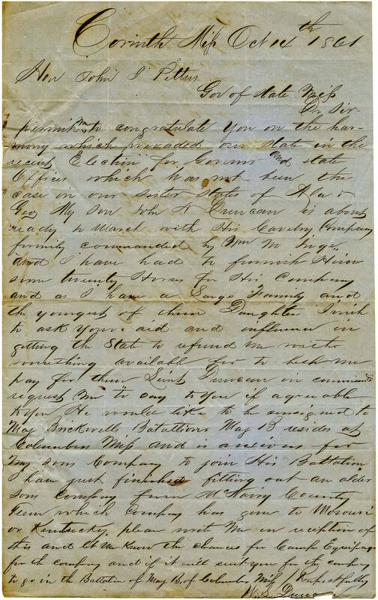 Corinth Miss Oct 14th 1861
Hon John J Pettus
Gov of State Miss
Dr Sir
permit me to congratulate you on the har-
mony which prevaded our State in the
recent Election for Govenor and State
Offices which was not been the
case in our Sister States of Ala &
Geo My Son John W Duncan is about
ready to March with His Cavelry Company
formily commanded by Wm M Inge
and I have had to furnish Him
some twenty Horses for His Company
and as I have a Large Family and
the youngest of them Daughters I wish
to ask your aid and influence in
getting the State to refund me with
something available for to help me
pay for them Lieut Duncan in command
request me to say to you if agreeable
to you He would like to be assigned to
Maj Brockwells Batattions Maj B resides at
Columbus Miss and is anxious for
my sons Company to join His Battalion
I have just finished fitting out an older
sons Company from McNairy County
Tenn which Company has gone to Missouri
or Kentucky, please write me on reception of
this and let me know the chances for Camp Equipage
for the company and if it will suit you for the company
to go in the Batalion of Maj B of Columbus, Miss Respectfully
W. S. Duncan